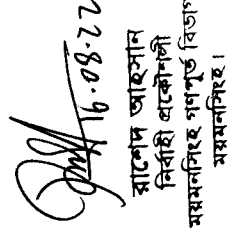 রাশেদ আহসান
নির্বাহী প্রকৌশলী
ময়মনসিংহ গণপূর্ত বিভাগ
ময়মনসিংহ।